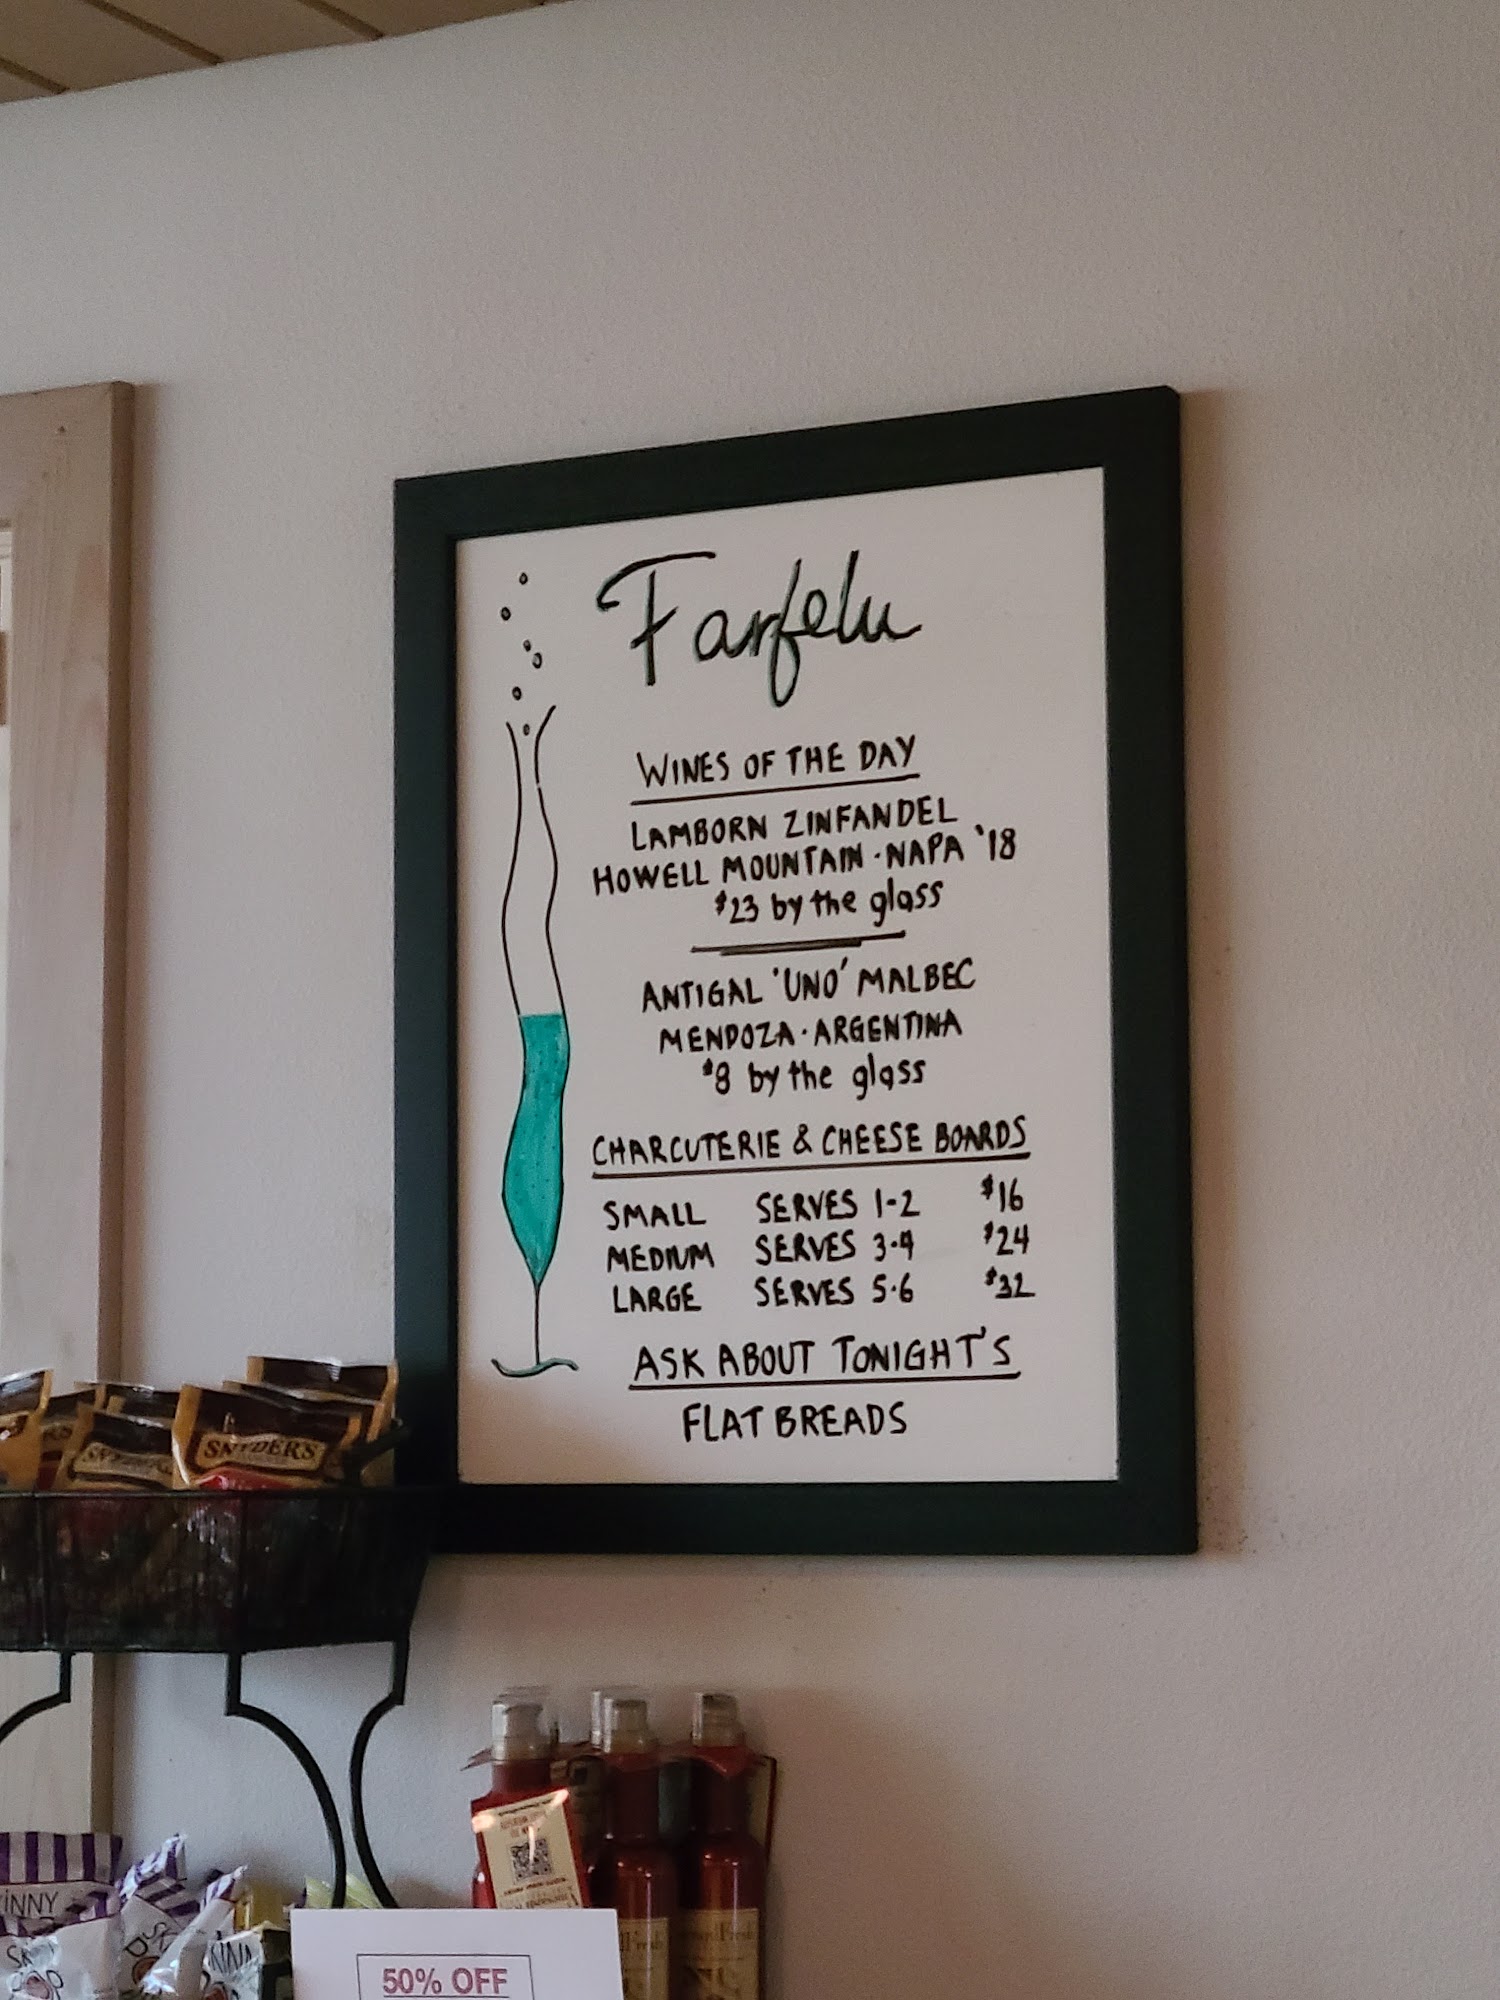 Farfelu
WINES OF THE DAY
LAMBORN ZINFANDEL
HOWELL MOUNTAIN · NAPA '18
$23 by the glass
ANTIGAL 'UNO' MALBEC
MENDOZA · ARGENTINA
$8 by the glass
CHARCUTERIE & CHEESE BOARDS
SMALL SERVES 1-2 $16
MEDIUM SERVES 3-4 $24
LARGE SERVES 5-6 $32
ASK ABOUT TONIGHT'S
FLAT BREADS
SNYDER'S
50% OFF